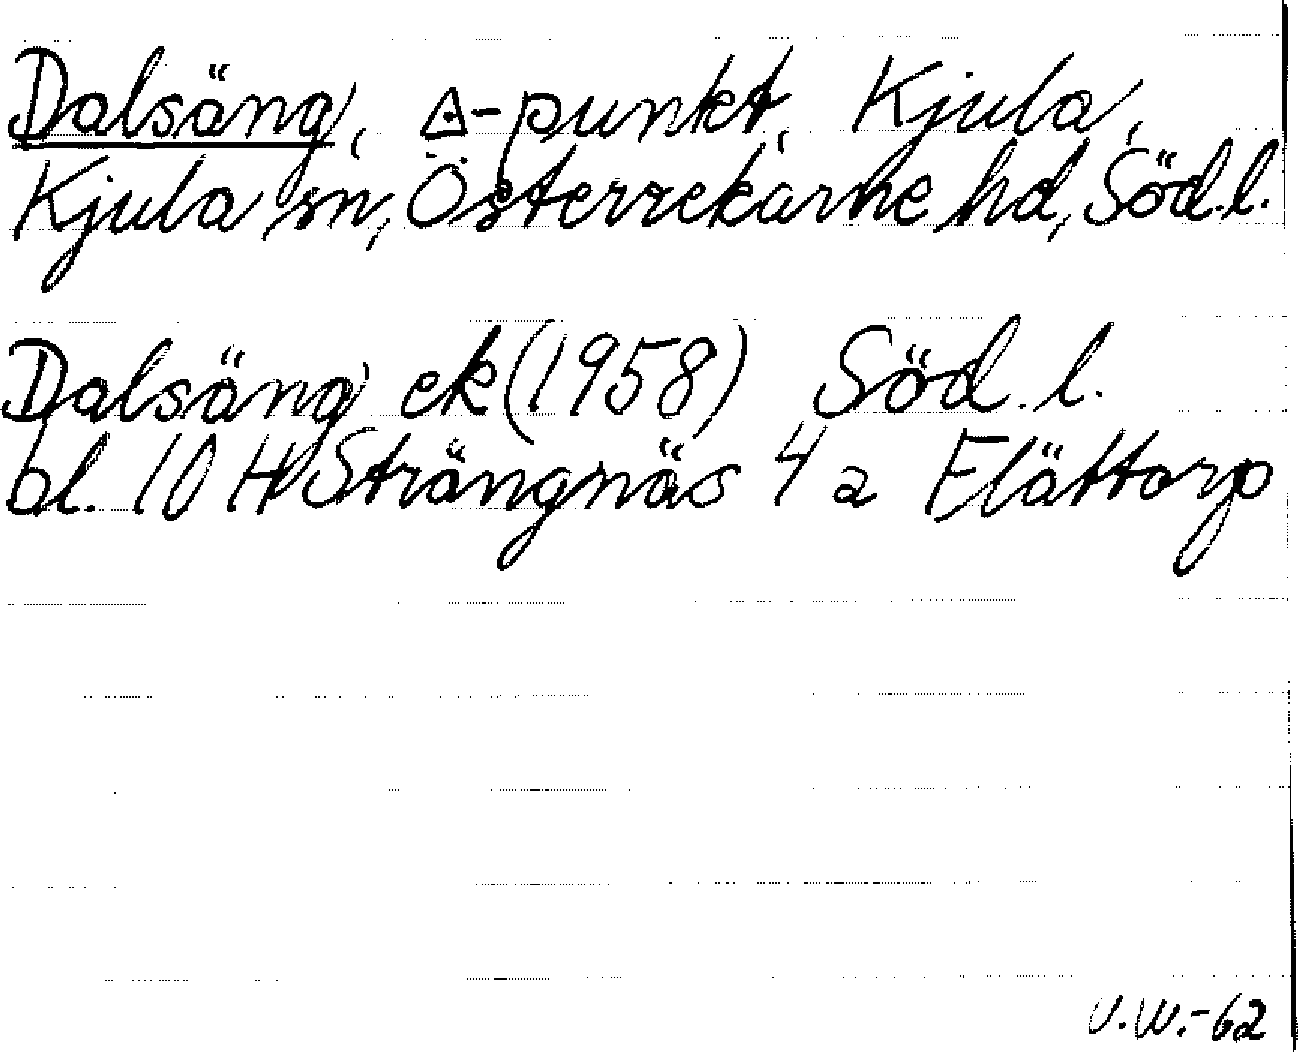 Dalsäng, △-punkt, Kjula,
Kjula sn, Österrekarne hd, Söd.l.
Dalsäng ek (1958) Söd. l.
bl. 10 H Strängnäs 4 a Flättorp
V.W.-62